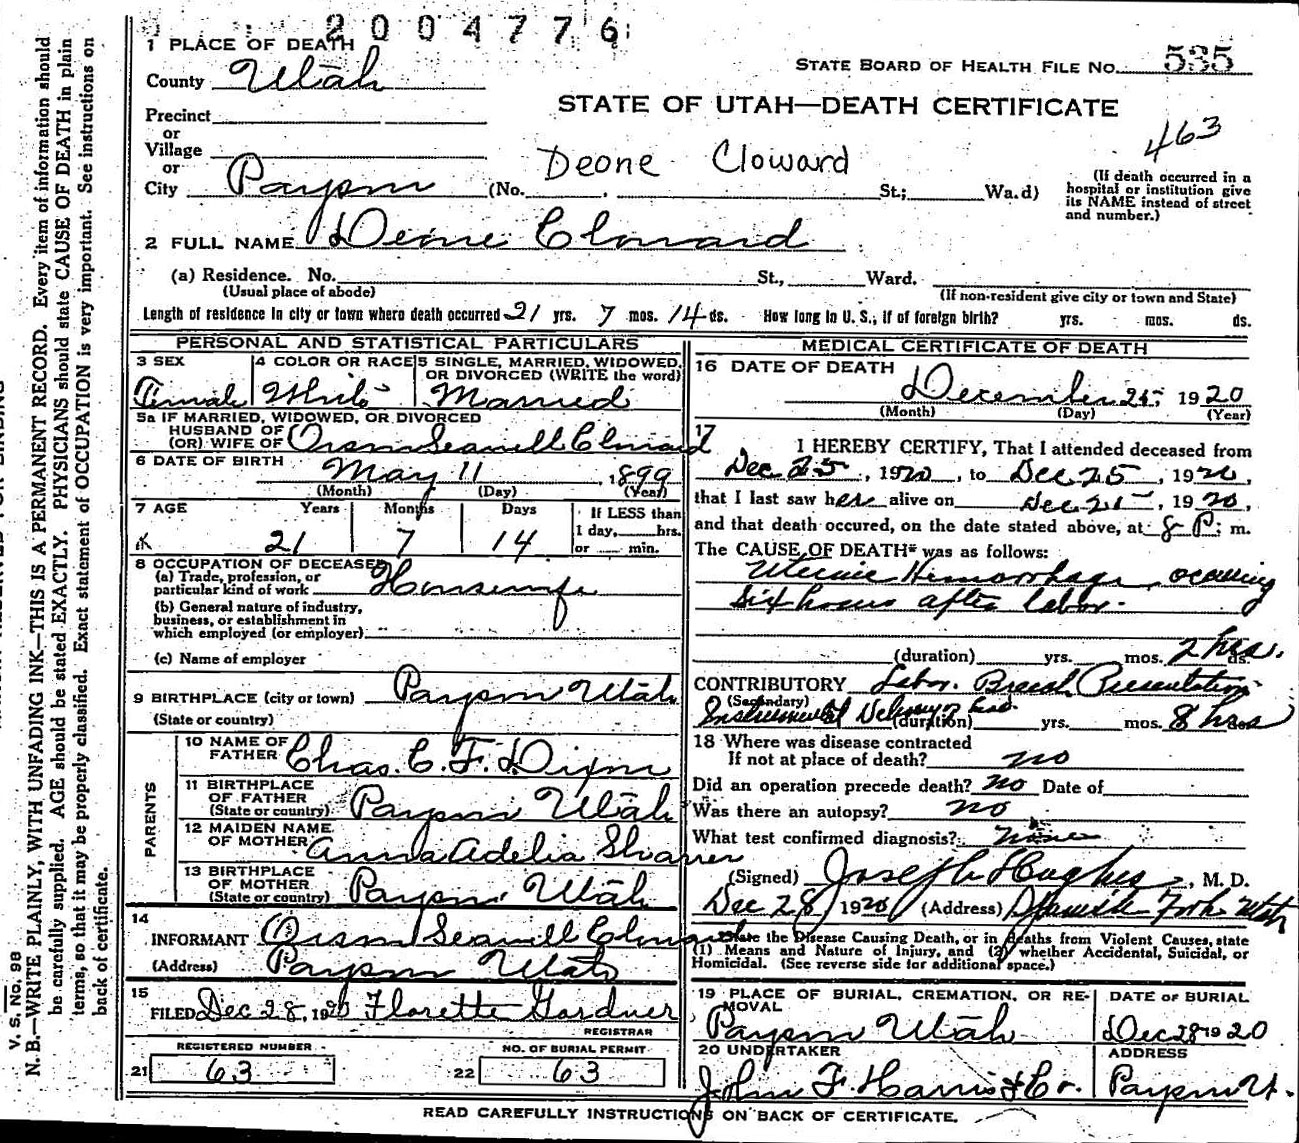 2004776
1 PLACE OF DEATH
County Utah
STATE BOARD OF HEALTH FILE NO. 535
STATE OF UTAH—DEATH CERTIFICATE
463
Precinct
or
Village
or
City Payson (No. Deone Cloward St; Wa.d)
(If death occurred in a
hospital or institution give
its NAME instead of street
and number.)
2 FULL NAME Deone Cloward
(a) Residence. No. St., Ward.
(Usual place of abode) (If non-resident give city or town and State)
Length of residence in city or town where death occurred 21 yrs. 7 mos. 14 ds. How long in U. S., if of foreign birth? yrs. mos. ds.
PERSONAL AND STATISTICAL PARTICULARS
3 SEX
Female
4 COLOR OR RACE
White
5 SINGLE, MARRIED, WIDOWED,
OR DIVORCED (WRITE the word)
Married
5a IF MARRIED, WIDOWED, OR DIVORCED
HUSBAND OF
(OR) WIFE OF Orson Seawell Cloward
6 DATE OF BIRTH May 11, 1899
(Month) (Day) (Year)
7 AGE Years Months Days If LESS than
1 day, hrs.
21 7 14 or min.
8 OCCUPATION OF DECEASED
(a) Trade, profession, or
particular kind of work Housewife
(b) General nature of industry,
business, or establishment in
which employed (or employer)
(c) Name of employer
9 BIRTHPLACE (city or town) Payson Utah
(State or country)
PARENTS
10 NAME OF
FATHER Chas. C. F. Dixon
11 BIRTHPLACE
OF FATHER
(State or country) Payson Utah
12 MAIDEN NAME
OF MOTHER Anna Adelia
13 BIRTHPLACE
OF MOTHER
(State or country) Payson, Utah
14
INFORMANT Orson Seawell Cloward
(Address) Payson Utah
15
FILED Dec 28, 1920 Florette Gardner
REGISTRAR
REGISTERED NUMBER
21 63
NO. OF BURIAL PERMIT
22 63
MEDICAL CERTIFICATE OF DEATH
16 DATE OF DEATH
December 25, 1920
(Month) (Day) (Year)
17
I HEREBY CERTIFY, That I attended deceased from
Dec 25, 1920, to Dec 25, 1920,
that I last saw her alive on Dec 25, 1920,
and that death occured, on the date stated above, at 8 P. m.
The CAUSE OF DEATH* was as follows:
Uterine Hemorrhage occurring
six hours after labor.
(duration) yrs. mos. 2 hrs. ds.
CONTRIBUTORY Labor. Breech Presentation
(Secondary)
Instrumental Delivery (duration) yrs. mos. 8 hrs ds
18 Where was disease contracted
If not at place of death? no
Did an operation precede death? no Date of
Was there an autopsy? no
What test confirmed diagnosis? none
(Signed) Joseph Hughes, M. D.
Dec 28, 1920 (Address) Spanish Fork Utah
State the Disease Causing Death, or in deaths from Violent Causes, state
(1) Means and Nature of Injury, and (2) whether Accidental, Suicidal, or
Homicidal. (See reverse side for additional space.)
19 PLACE OF BURIAL, CREMATION, OR RE-
MOVAL
Payson Utah
DATE OF BURIAL
Dec 28 1920
20 UNDERTAKER
John F. Harris & Co.
ADDRESS
Payson Ut.
READ CAREFULLY INSTRUCTIONS ON BACK OF CERTIFICATE.
V. S. No. 98
N. B.—WRITE PLAINLY, WITH UNFADING INK—THIS IS A PERMANENT RECORD. Every item of information should
be carefully supplied. AGE should be stated EXACTLY. PHYSICIANS should state CAUSE OF DEATH in plain
terms, so that it may be properly classified. Exact statement of OCCUPATION is very important. See instructions on
back of certificate.